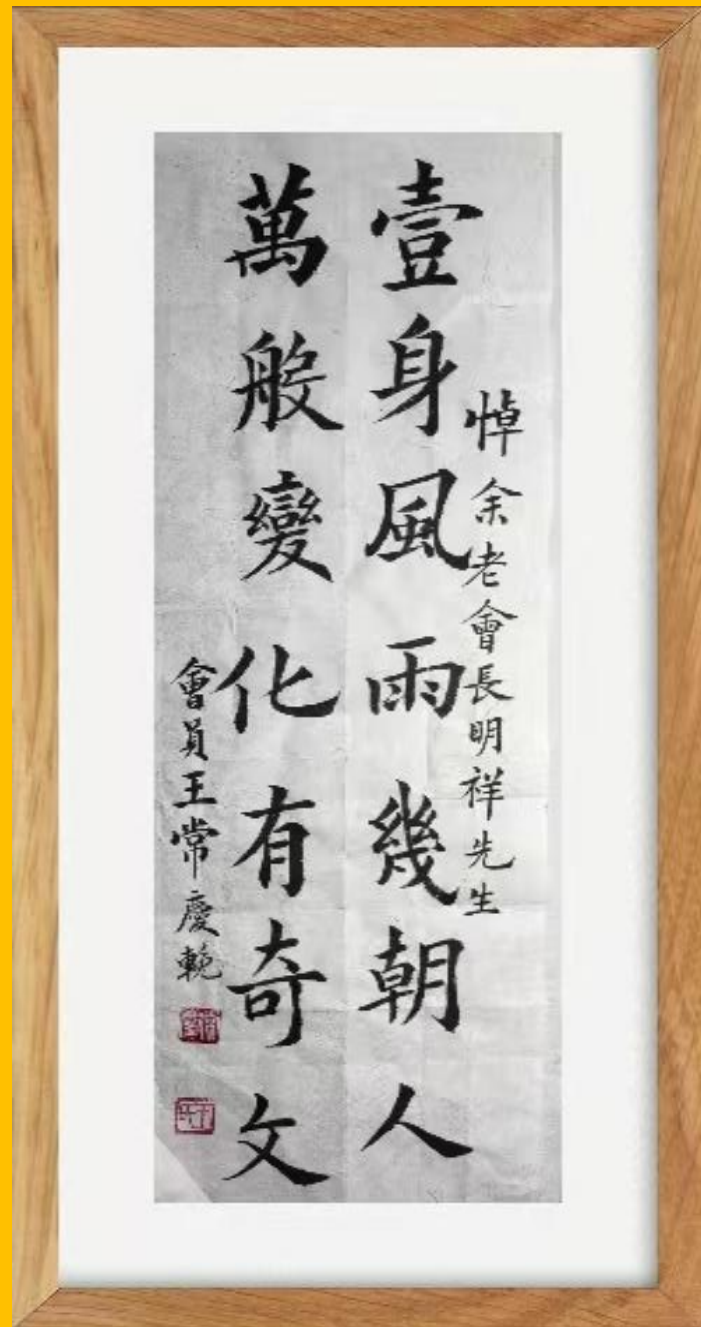 悼余老會長明祥先生
壹身風雨幾朝人
萬般變化有奇文
會員王常慶輓